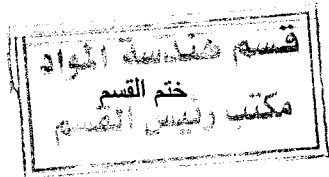 قسم هندسة المواد
ختم القسم
مكتب رئيس القسم